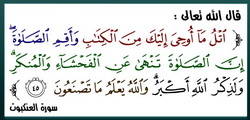 قال الله تعالى :
ٱتْلُ مَآ أُوحِىَ إِلَيْكَ مِنَ ٱلْكِتَٰبِ وَأَقِمِ ٱلصَّلَوٰةَ ۖ
إِنَّ ٱلصَّلَوٰةَ تَنْهَىٰ عَنِ ٱلْفَحْشَآءِ وَٱلْمُنكَرِ ۗ
وَلَذِكْرُ ٱللَّهِ أَكْبَرُ ۗ وَٱللَّهُ يَعْلَمُ مَا تَصْنَعُونَ ٤٥
سورة العنكبوت